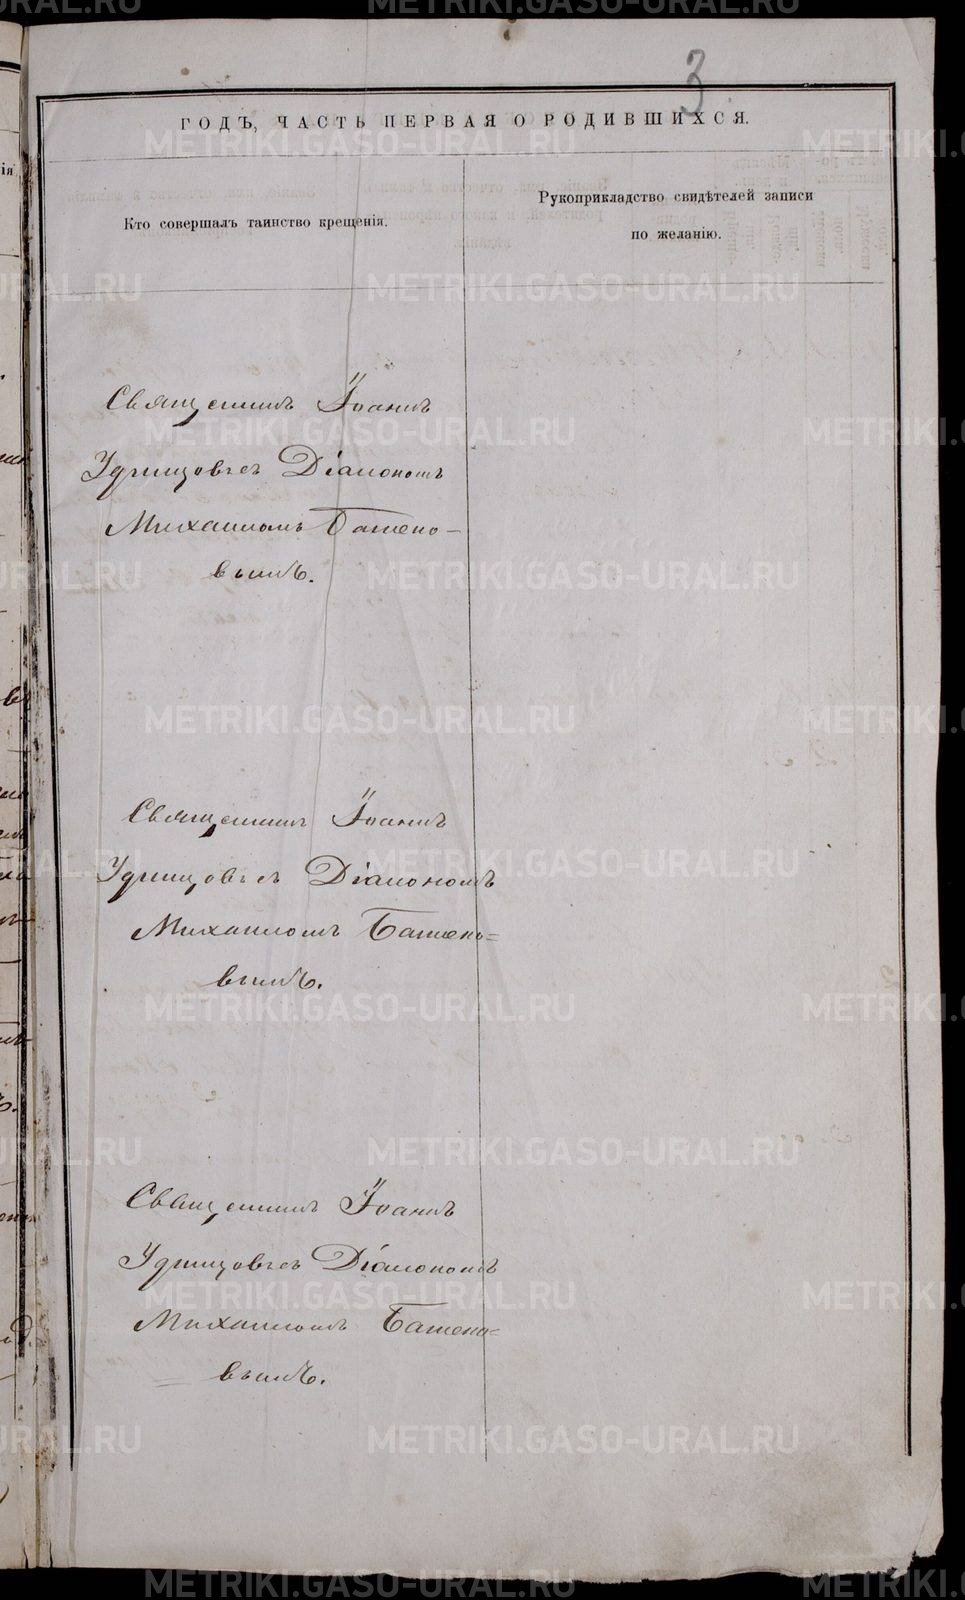 3
ГОДЪ, ЧАСТЬ ПЕРВАЯ О РОДИВШИХСЯ.
Кто совершалъ таинство крещенія.
Рукоприкладство свидѣтелей записи
по желанію.
Священникъ Іоаннъ
Удинцовъ съ Діакономъ
Михаиломъ Батено-
вымъ.
Священникъ Іоаннъ
Удинцовъ съ Діакономъ
Михаиломъ Батено=
вымъ.
Священникъ Іоаннъ
Удинцовъ съ Діакономъ
Михаиломъ Батено=
вымъ.
METRIKI.GASO-URAL.RU